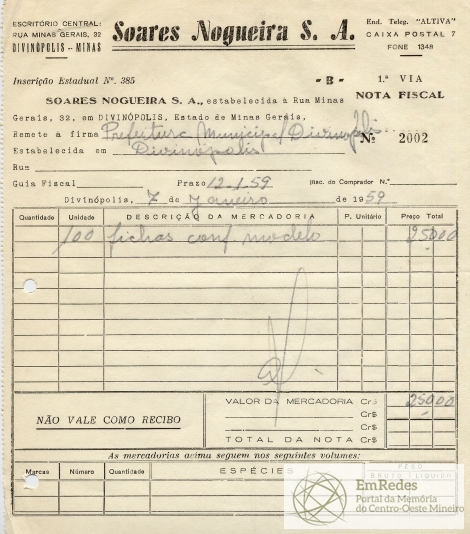 ESCRITÓRIO CENTRAL:
RUA MINAS GERAIS, 32
DIVINÓPOLIS - MINAS
Soares Nogueira S. A.
End. Teleg. "ALTIVA"
CAIXA POSTAL 7
FONE 1348
Inscrição Estadual Nº. 385
- B -
1.ª VIA
NOTA FISCAL
SOARES NOGUEIRA S. A., estabelecida à Rua Minas
Gerais, 32, em DIVINÓPOLIS, Estado de Minas Gerais,
Remete à firma Prefeitura Municipal Divinóplis
Nº 2002
Estabelecida em Divinópolis
Rua
Guia Fiscal Prazo 12-1-59 Insc. do Comprador N.º
Divinópolis, 7 de Janeiro de 1959
Quantidade Unidade DESCRIÇÃO DA MERCADORIA P. Unitário Preço Total
100 fichas conf modelo 250 00
VALOR DA MERCADORIA Cr$ 250 00
Cr$
NÃO VALE COMO RECIBO
Cr$
TOTAL DA NOTA Cr$
As mercadorias acima seguem nos seguintes volumes:
Marcas Número Quantidade ESPÉCIES PESO
BRUTO LIQUIDO
EmRedes
Portal da Memória
do Centro-Oeste Mineiro